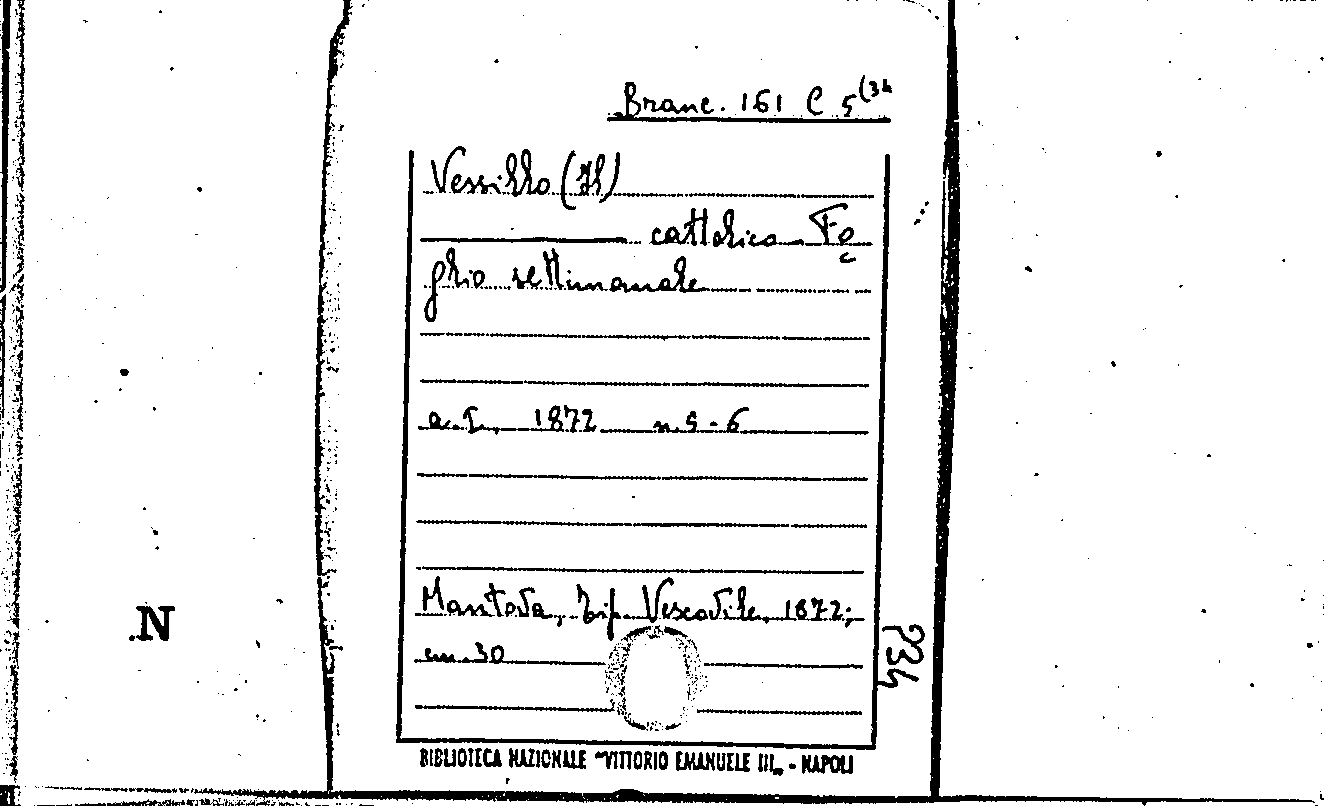 Branc. 161 C 5(34
Vessillo (Il)
cattolico Fo
glio settimanale
a. I, 1872 n. 5-6
Mantova, Tip. Vescovile, 1872;
cm. 30
N
BIBLIOTECA NAZIONALE "VITTORIO EMANUELE III„ - NAPOLI